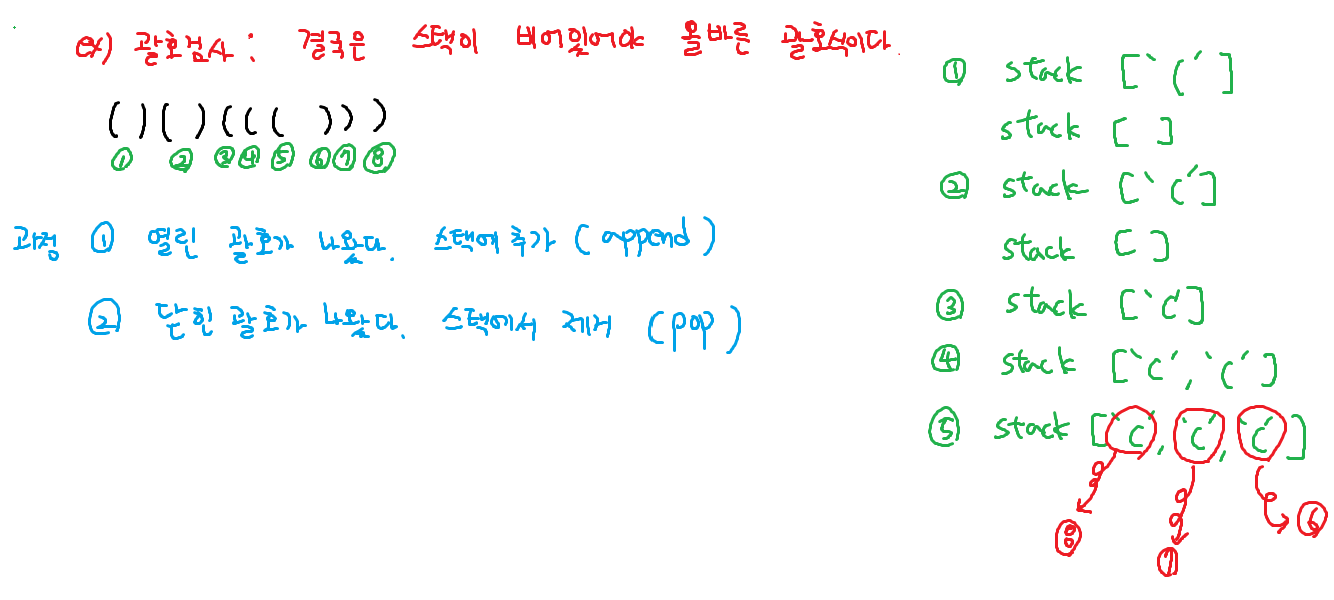 ex) 괄호검사 : 결국은 스택이 비어있어야 올바른 괄호식이다.
( ) ( ) ( ( ( ) ) )
① ② ③ ④ ⑤ ⑥ ⑦ ⑧
과정 ① 열린 괄호가 나왔다. 스택에 추가 ( append )
② 닫힌 괄호가 나왔다. 스택에서 제거 ( pop )
① stack [ '(' ]
stack [ ]
② stack [ '(' ]
stack [ ]
③ stack [ '(' ]
④ stack [ '(', '(' ]
⑤ stack [ '(', '(', '(' ]
⑧ ⑦ ⑥